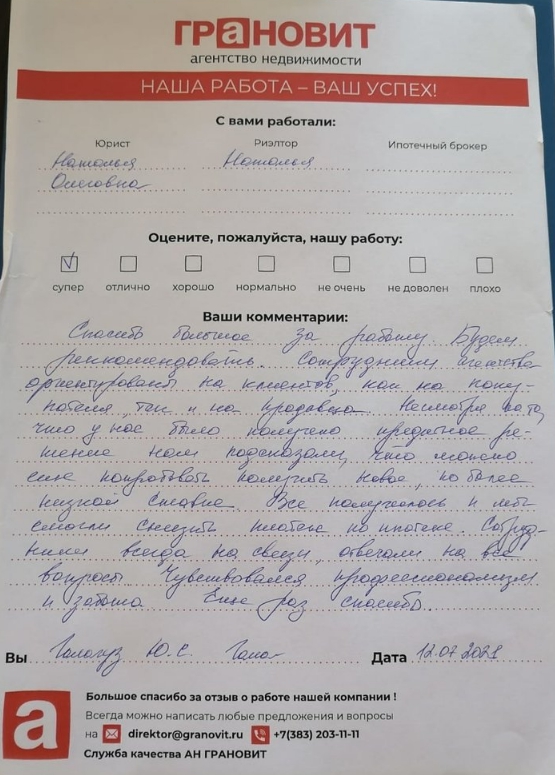 ГРАНОВИТ
агентство недвижимости
НАША РАБОТА – ВАШ УСПЕХ!
С вами работали:
Юрист Риэлтор Ипотечный брокер
Наталья Наталья
Олеговна
Оцените, пожалуйста, нашу работу:
супер отлично хорошо нормально не очень не доволен плохо
Ваши комментарии:
Спасибо большое за работу. Будем
рекомендовать. Сотрудники агентства
ориентированы на клиентов, как на поку-
пателя, так и на продавца. Несмотря на то,
что у нас было получено кредитное ре-
шение нам подсказали, что можно
еще попробовать получить новое, по более
низкой ставке. Все получилось и мы
смогли снизить платеж по ипотеке. Сотруд-
ники всегда на связи, отвечали на все
вопросы. Чувствовался профессионализм
и забота. Еще раз спасибо.
Вы Ю.С. Дата 12.07 2021
а
Большое спасибо за отзыв о работе нашей компании !
Всегда можно написать любые предложения и вопросы
на direktor@granovit.ru +7(383) 203-11-11
Служба качества АН ГРАНОВИТ